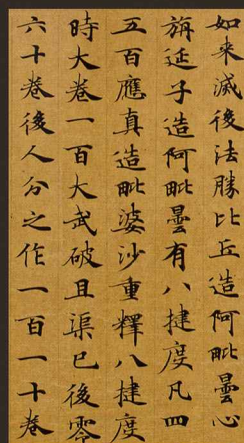 如来滅後法勝比丘造阿毗曇心
旃延子造阿毗曇有八揵度凡四
五百應真造毗婆沙重釋八揵度
時大卷一百大武破且渠已後零
六十卷後人分之作一百一十卷